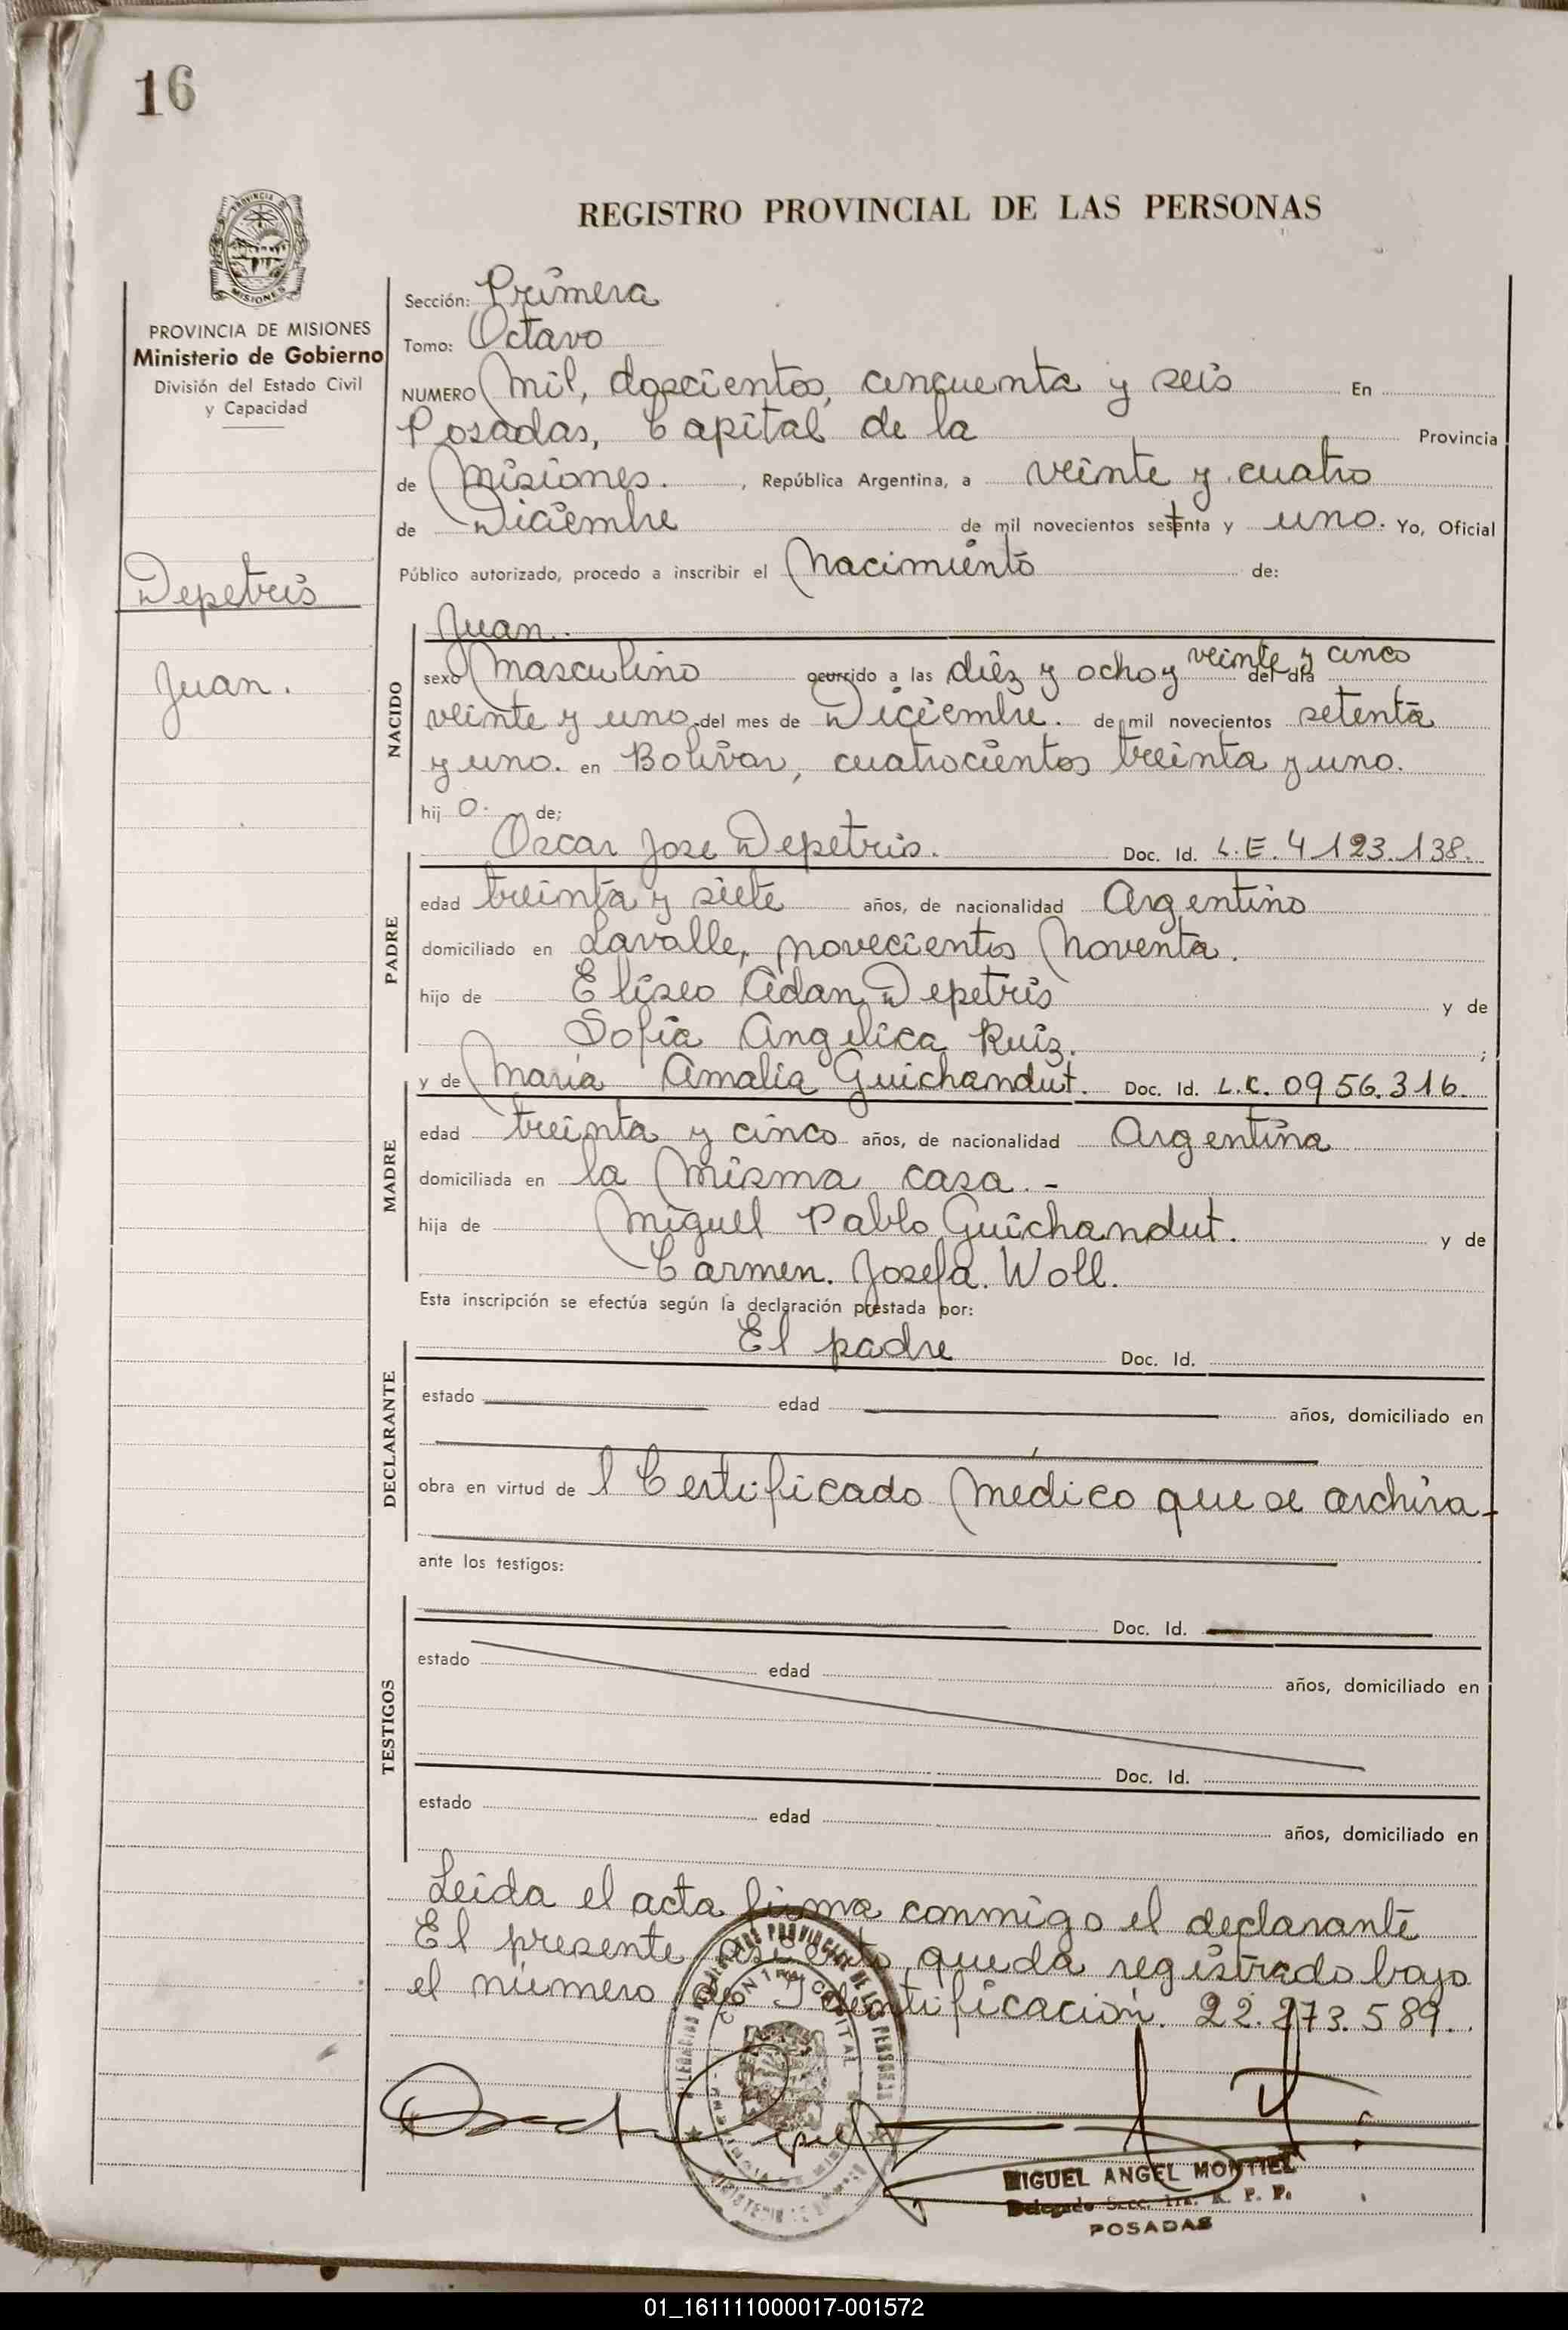 16
PROVINCIA DE
MISIONES
REGISTRO PROVINCIAL DE LAS PERSONAS
PROVINCIA DE MISIONES
Ministerio de Gobierno
División del Estado Civil
y Capacidad
Depetris
Juan.
Sección: Primera
Tomo: Octavo
NUMERO Mil, doscientos, cincuenta y seis En
Posadas, Capital de la Provincia
de Misiones. , República Argentina, a veinte y cuatro
de Diciembre de mil novecientos setenta y uno. Yo, Oficial
Público autorizado, procedo a inscribir el Nacimiento de:
NACIDO
Juan.
sexo Masculino ocurrido a las diez y ocho y veinte y cinco del día
veinte y uno del mes de Diciembre. de mil novecientos setenta
y uno. en Bolivar, cuatrocientos treinta y uno.
hij o. de;
PADRE
Oscar Jose Depetris. Doc. Id. L.E. 4 123.138.
edad treinta y siete años, de nacionalidad Argentino
domiciliado en Lavalle, novecientos Noventa.
hijo de Eliseo Adan Depetris y de
Sofia Angelica Ruiz. ;
MADRE
y de Maria Amalia Guichandut. Doc. Id. L.C. 0956.316.
edad treinta y cinco años, de nacionalidad Argentina
domiciliada en la Misma casa. -
hija de Miguel Pablo Guichandut. y de
Carmen. Josefa. Woll.
Esta inscripción se efectúa según la declaración prestada por:
DECLARANTE
El padre Doc. Id.
estado edad años, domiciliado en
obra en virtud de l Certificado Médico que se archiva-
ante los testigos:
TESTIGOS
Doc. Id.
estado edad años, domiciliado en
Doc. Id.
estado edad años, domiciliado en
Leida el acta firma conmigo el declarante
El presente asiento, queda registrado bajo
el número de Identificación. 22.273.589.
MIGUEL ANGEL MONTIEL
Delegado Secc. 1ra. R. P. P.
POSADAS
01_161111000017-001572